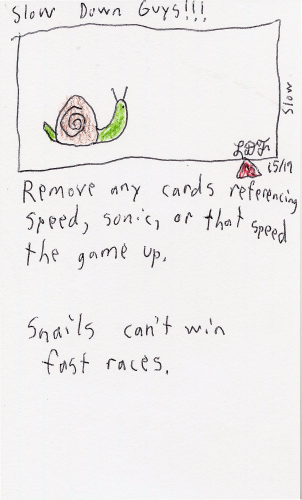 Slow Down Guys!!!
Slow
LDF
i5/19
Remove any cards referencing
speed, sonic, or that speed
the game up.
Snails can't win
fast races.